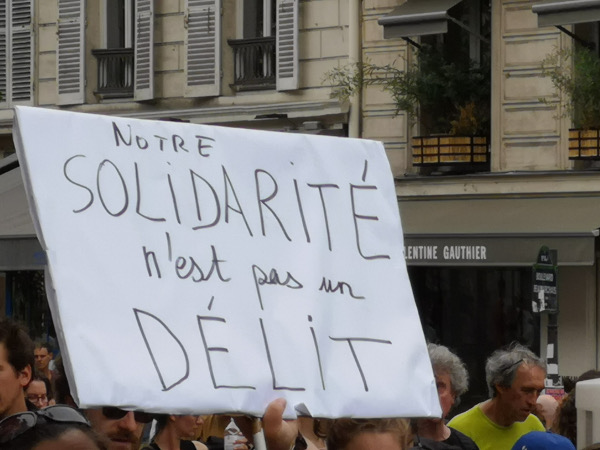 NOTRE
SOLIDARITÉ
n'est pas un
DÉLIT
LENTINE GAUTHIER
BOULEVARD
BEAUMARCHAIS